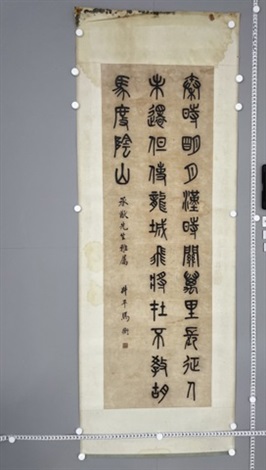 秦時明月漢時關萬里長征人
未還但使龍城飛將在不教胡
馬度陰山
先生雅屬
叔平馬衡